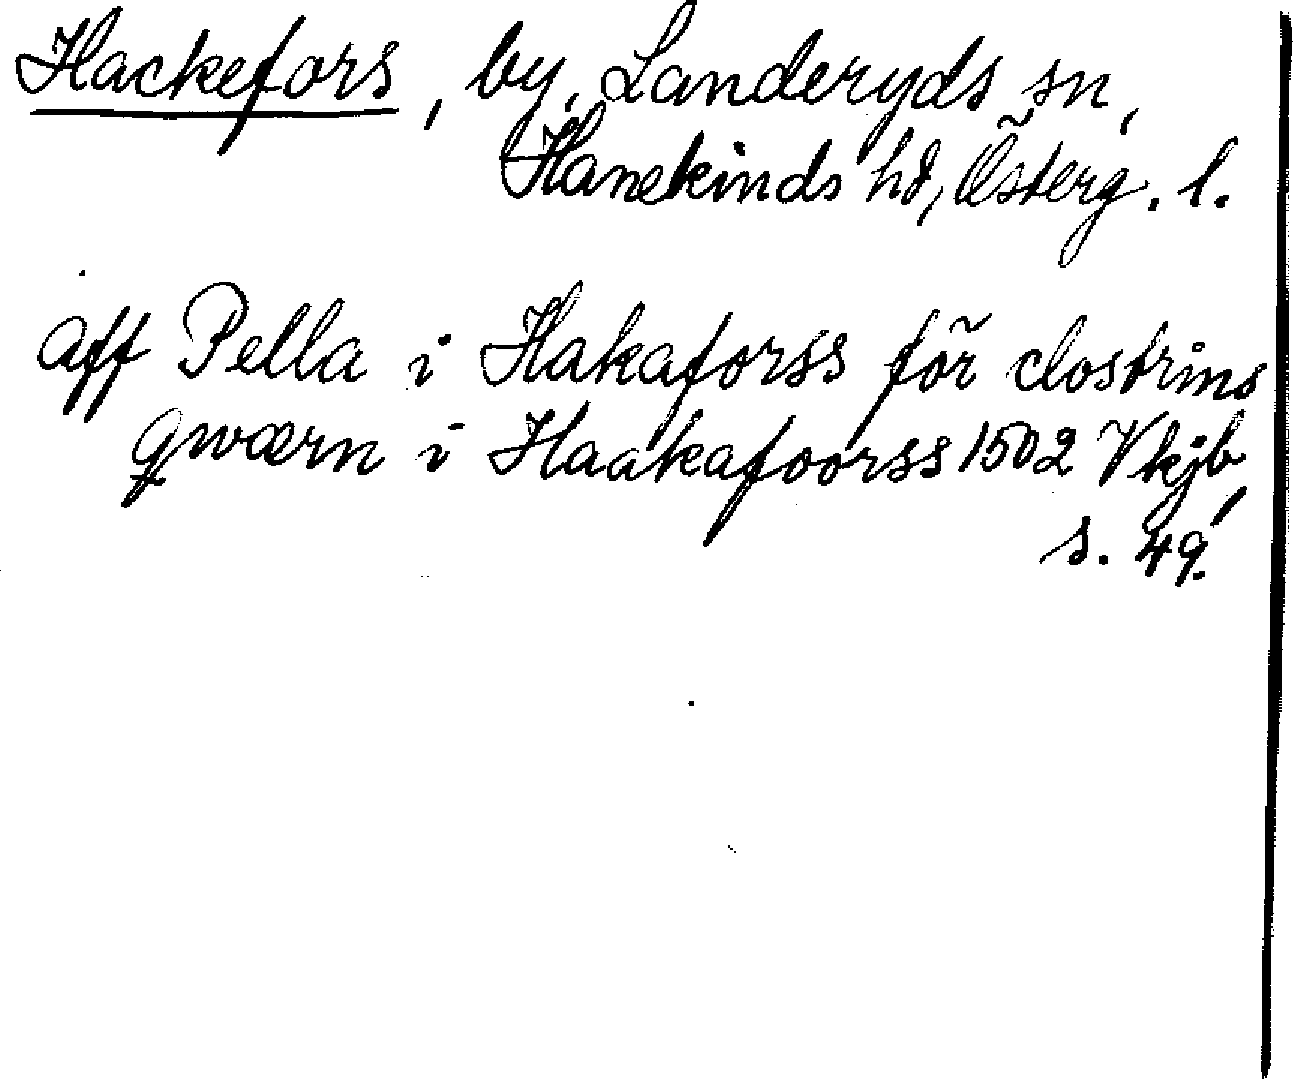 Hackefors, by, Landeryds sn,
Hanekinds hd, Österg. l.
aff Pella i Hakaforss för clostrins
qwærn i Haakafoorss 1502 Vkjb,
s. 49.